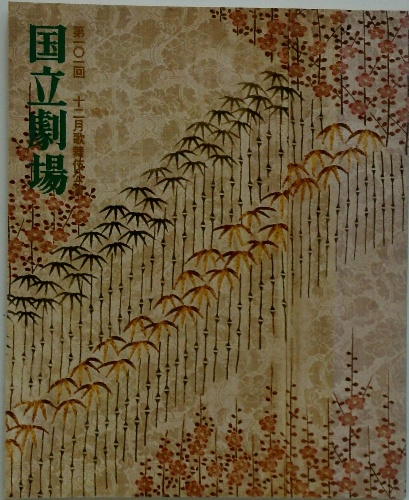 国立劇場
第一〇一回 十二月歌舞伎公演